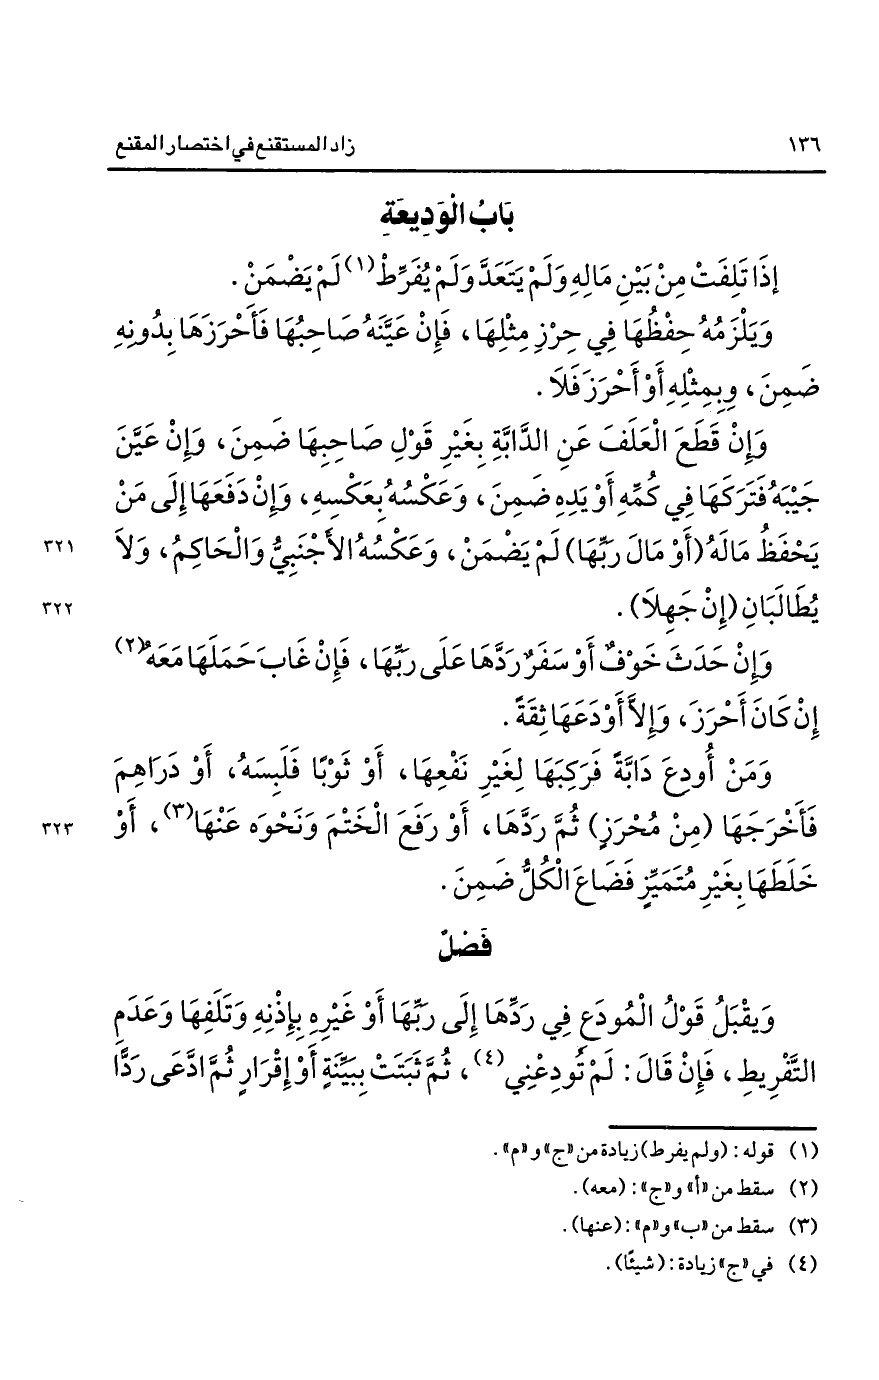 ١٣٦ زاد المستقنع في اختصار المقنع
بَابُ الْوَدِيعَةِ
إِذَا تَلِفَتْ مِنْ بَيْنِ مَالِهِ وَلَمْ يَتَعَدَّ وَلَمْ يُفَرِّطْ(١) لَمْ يَضْمَنْ.
وَيَلْزَمُهُ حِفْظُهَا فِي حِرْزِ مِثْلِهَا، فَإِنْ عَيَّنَهُ صَاحِبُهَا فَأَحْرَزَهَا بِدُونِهِ
ضَمِنَ، وبِمِثْلِهِ أَوْ أَحْرَزَ فَلَا.
وَإِنْ قَطَعَ الْعَلَفَ عَنِ الدَّابَّةِ بِغَيْرِ قَوْلِ صَاحِبِهَا ضَمِنَ، وَإِنْ عَيَّنَ
جَيْبَهُ فَتَرَكَهَا فِي كُمِّهِ أَوْ يَدِهِ ضَمِنَ، وَعَكْسُهُ بِعَكْسِهِ، وَإِنْ دَفَعَهَا إِلَى مَنْ
يَحْفَظُ مَالَهُ (أَوْ مَالَ رَبِّهَا) لَمْ يَضْمَنْ، وَعَكْسُهُ الأَجْنَبِيُّ وَالْحَاكِمُ، وَلَا ٣٢١
يُطَالَبَانِ (إِنْ جَهِلَا). ٣٢٢
وَإِنْ حَدَثَ خَوْفٌ أَوْ سَفَرٌ رَدَّهَا عَلَى رَبِّهَا، فَإِنْ غَابَ حَمَلَهَا مَعَهُ(٢)
إِنْ كَانَ أَحْرَزَ، وَإِلَّا أَوْدَعَهَا ثِقَةً.
وَمَنْ أُودِعَ دَابَّةً فَرَكِبَهَا لِغَيْرِ نَفْعِهَا، أَوْ ثَوْبًا فَلَبِسَهُ، أَوْ دَرَاهِمَ
فَأَخْرَجَهَا (مِنْ مُحْرَزٍ) ثُمَّ رَدَّهَا، أَوْ رَفَعَ الْخَتْمَ وَنَحْوَه عَنْهَا(٣)، أَوْ ٣٢٣
خَلَطَهَا بِغَيْرِ مُتَمَيِّزٍ فَضَاعَ الْكُلُّ ضَمِنَ.
فَصْلٌ
وَيقْبَلُ قَوْلُ الْمُودَعِ فِي رَدِّهَا إِلَى رَبِّهَا أَوْ غَيْرِهِ بِإِذْنِهِ وَتَلَفِهَا وَعَدَمِ
التَّفْرِيطِ، فَإِنْ قَالَ: لَمْ تُودِعْنِي(٤)، ثُمَّ ثَبَتَتْ بِبَيِّنَةٍ أَوْ إِقْرَارٍ ثُمَّ ادَّعَى رَدًّا
(١) قوله: (ولم يفرط) زيادة من «ج» و «م».
(٢) سقط من «أ» و«ج»: (معه).
(٣) سقط من «ب» و«م»: (عنها).
(٤) في «ج» زيادة: (شيئًا).